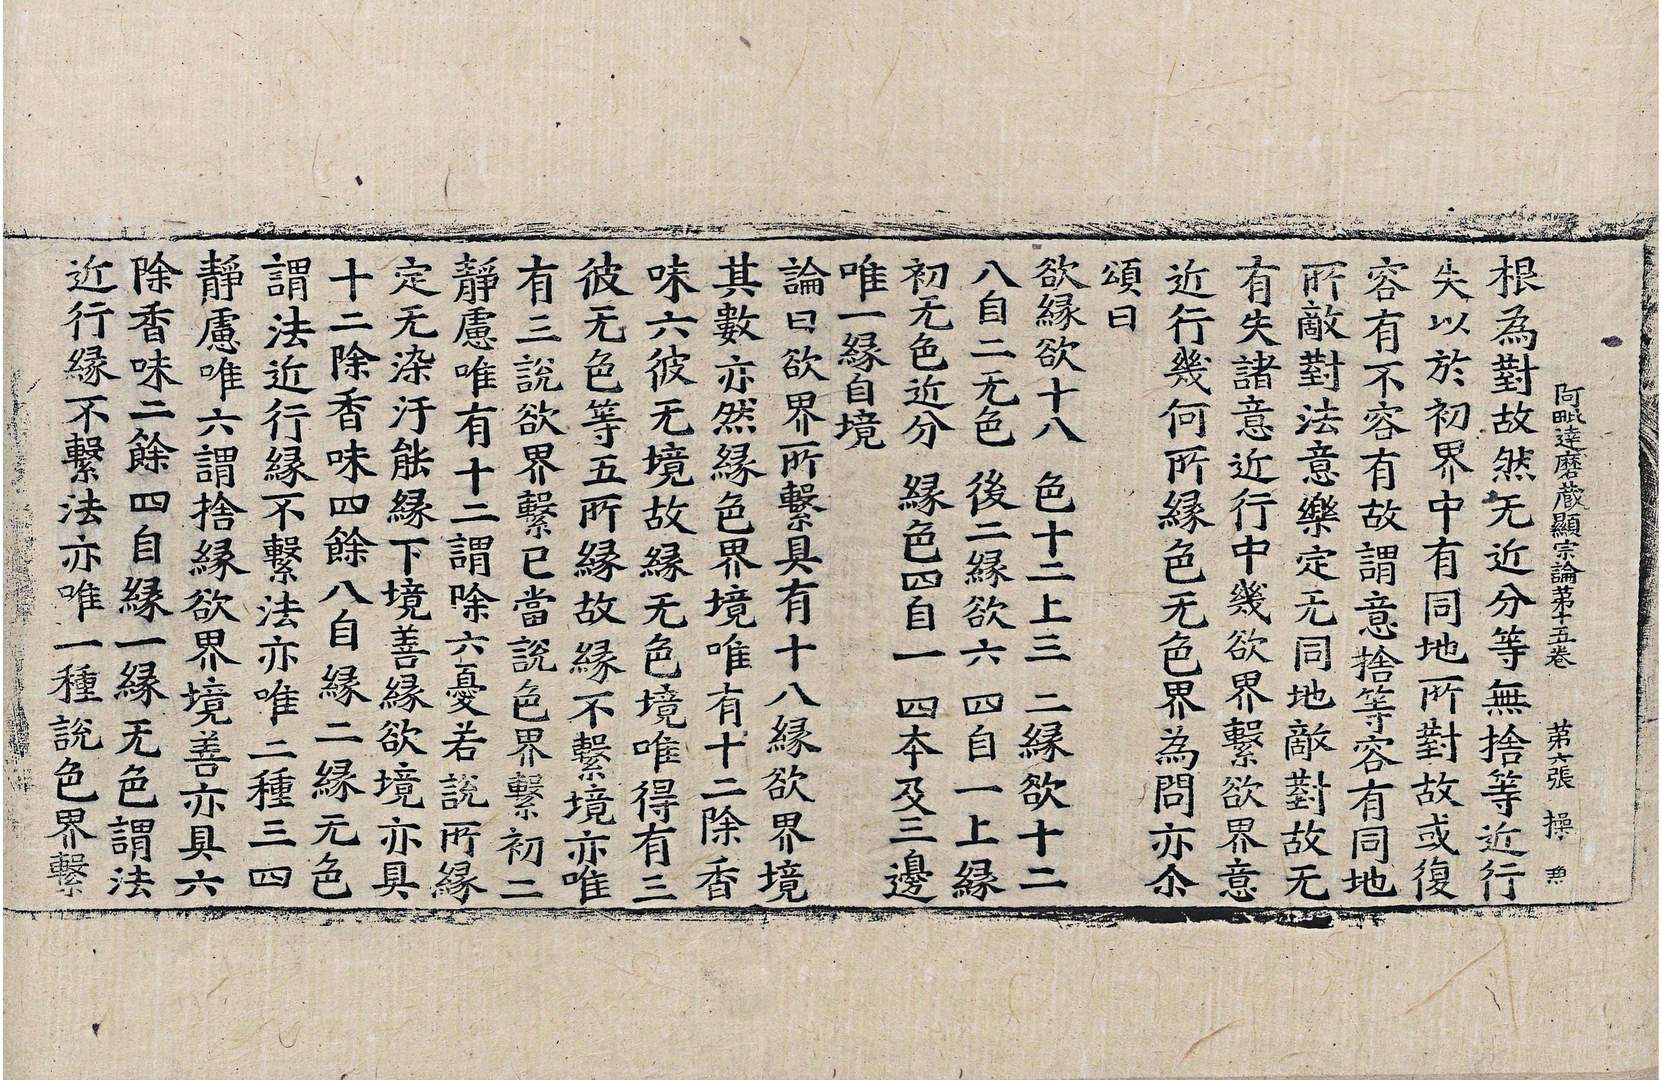 阿毗達磨藏顯宗論第十五卷 第六張 操
根為對故然无近分等無捨等近行
失以於初界中有同地所對故或復
容有不容有故謂意捨等容有同地
所敵對法意樂定无同地敵對故无
有失諸意近行中幾欲界繫欲界意
近行幾何所縁色无色界為問亦尒
頌曰
欲縁欲十八 色十二上三 二縁欲十二
八自二无色 後二縁欲六 四自一上縁
初无色近分 縁色四自一 四本及三邊
唯一縁自境
論曰欲界所繫具有十八縁欲界境
其數亦然縁色界境唯有十二除香
味六彼无境故縁无色境唯得有三
彼无色等五所縁故縁不繫境亦唯
有三說欲界繫已當說色界繫初二
靜慮唯有十二謂除六憂若說所縁
定无染汙能縁下境善縁欲境亦具
十二除香味四餘八自縁二縁无色
謂法近行縁不繫法亦唯二種三四
靜慮唯六謂捨縁欲界境善亦具六
除香味二餘四自縁一縁无色謂法
近行縁不繫法亦唯一種說色界繫